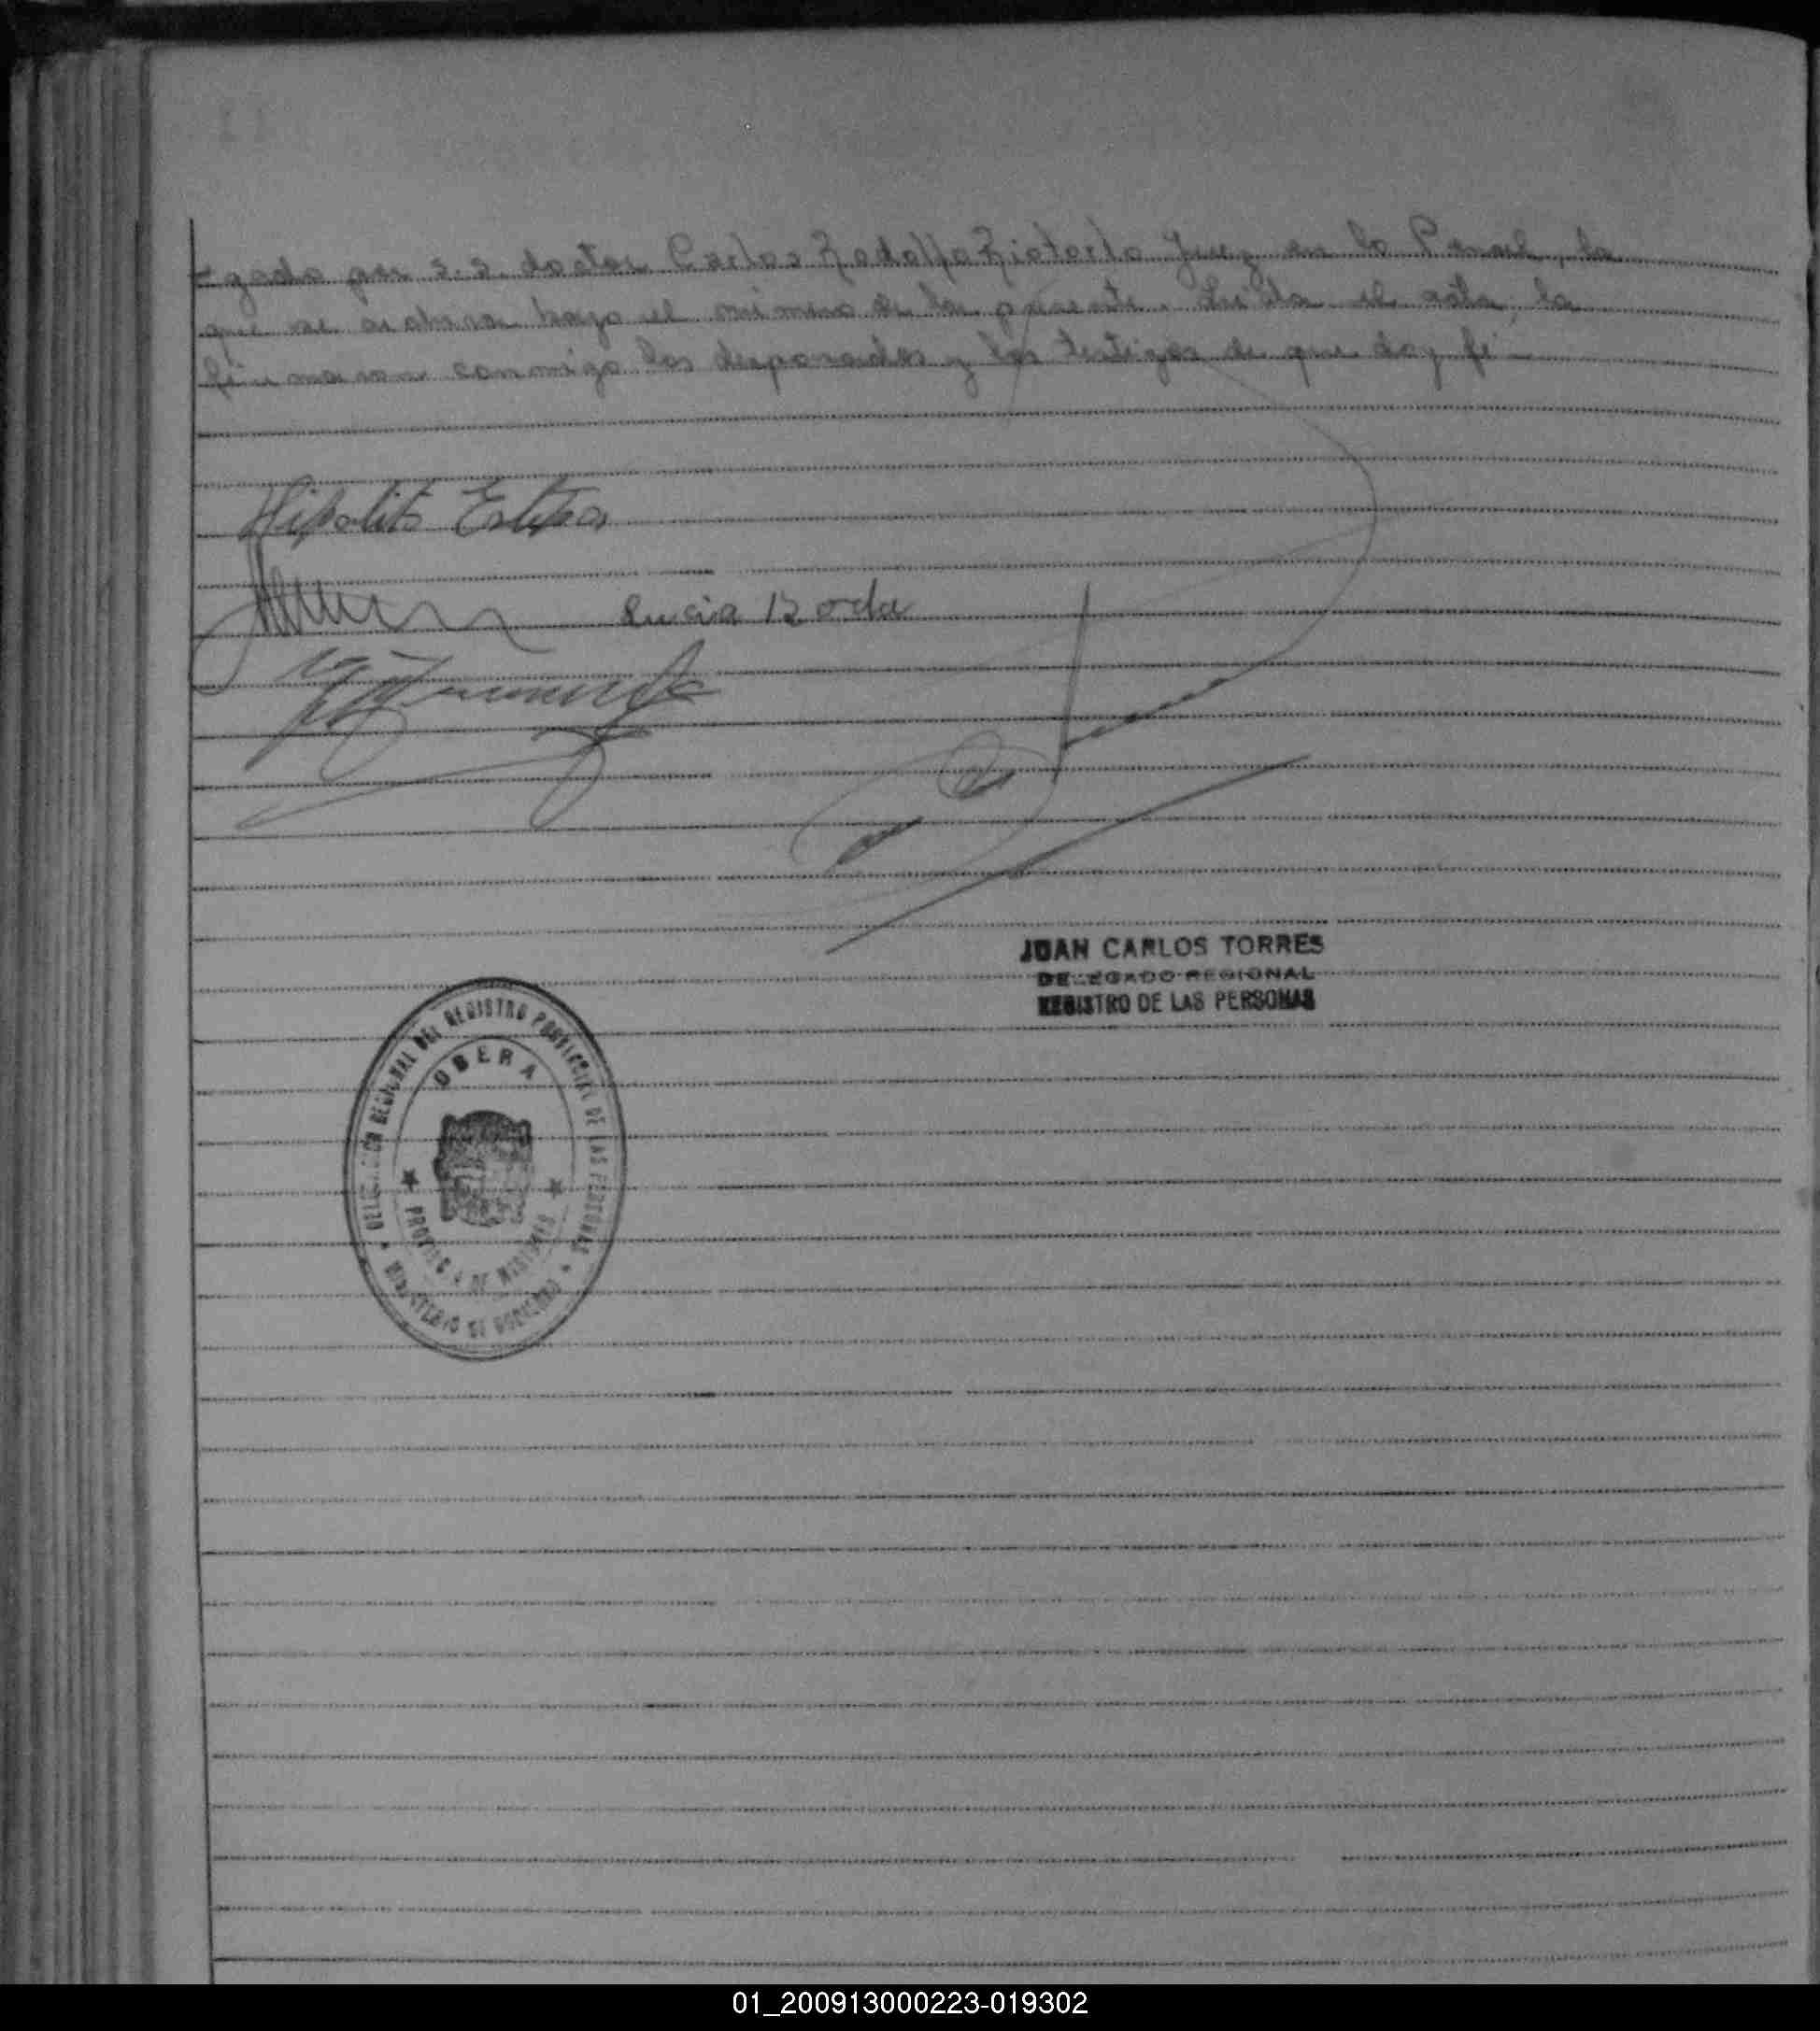 gado por S.S. doctor Carlos Rodolfo Juez en lo Penal, la
que se archiva bajo el número de la presente. Leída el acta, la
firmaron conmigo los desposados y los testigos de que doy fé
Hipolito
Lucia
JUAN CARLOS TORRES
DELEGADO REGIONAL
REGISTRO DE LAS PERSONAS
DELEGACION REGIONAL DEL REGISTRO PROVINCIAL DE LAS PERSONAS
OBERA
PROVINCIA DE MISIONES
MINISTERIO DE GOBIERNO
01_200913000223-019302